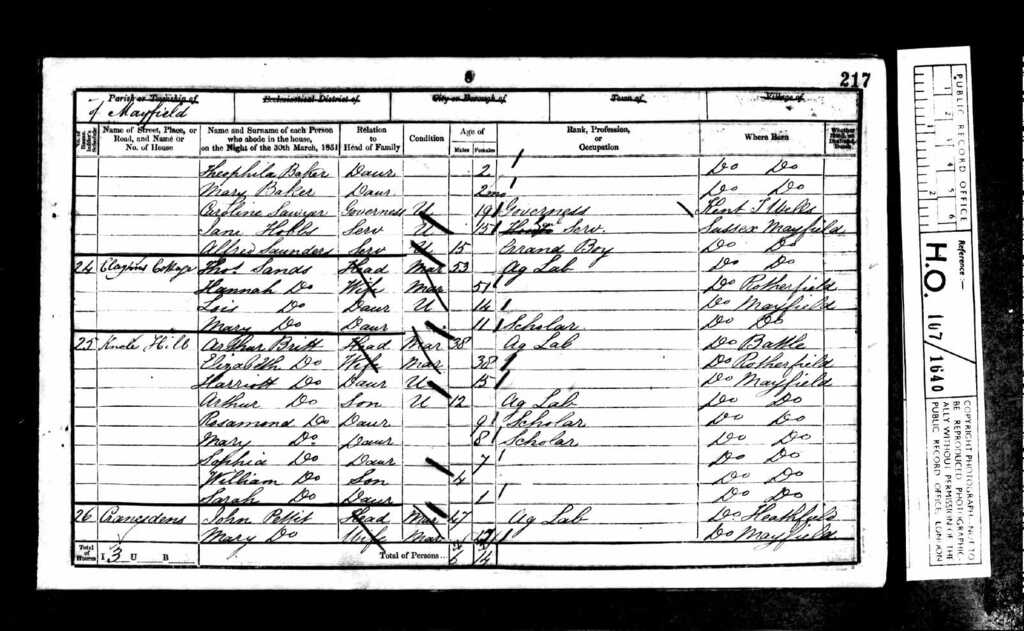 217
Parish or Township of Ecclesiastical District of City or Borough of Town of Village of
of Mayfield
Name of Street, Place, or Road, and Name or No. of House Name and Surname of each Person who abode in the house, on the Night of the 30th March, 1851 Relation to Head of Family Condition Age of Males Females Rank, Profession, or Occupation Where Born
Theophila Baker Daur 2 Do Do
Mary Baker Daur 2mo Do Do
Caroline Sawyer Governess U 19 Governess Kent T Wells
Jane Hobbs Serv U 15 Serv. Sussex Mayfield
Alfred Saunders Serv U 15 Errand Boy Do Do
24 Cottage Thos Sands Head Mar 53 Ag Lab Do Do
Hannah Do Wife Mar 51 Do Rotherfield
Lois Do Daur U 14 Do Mayfield
Mary Do Daur 11 Scholar Do Do
25 Knole Hill Arthur Britt Head Mar 38 Ag Lab Do Battle
Elizabeth Do Wife Mar 38 Do Rotherfield
Harriott Do Daur U 15 Do Mayfield
Arthur Do Son U 12 Ag Lab Do Do
Rosamond Do Daur 9 Scholar Do Do
Mary Do Daur 8 Scholar Do Do
Sophia Do Daur 7 Do Do
William Do Son 4 Do Do
Sarah Do Daur 1 Do Do
26 Crangsdens John Pettit Head Mar 47 Ag Lab Do Heathfield
Mary Do Wife Mar Do Mayfield
Total of Houses I 3 U B Total of Persons... 6 14
PUBLIC RECORD OFFICE
Reference:-
H.O. 107/1640
COPYRIGHT PHOTOGRAPH-NOT TO BE REPRODUCED PHOTOGRAPHICALLY WITHOUT PERMISSION OF THE PUBLIC RECORD OFFICE, LONDON